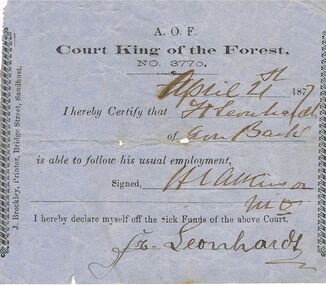 A. O. F.
Court King of the Forest,
NO. 3770.
April 21st 187
I hereby Certify that H Leonhardt
of
is able to follow his usual employment,
Signed, H L Atkinson
M D
I hereby declare myself off the Sick Funds of the above Court.
Leonhardt
J. Brockley, Printer, Bridge Street, Sandhurst.